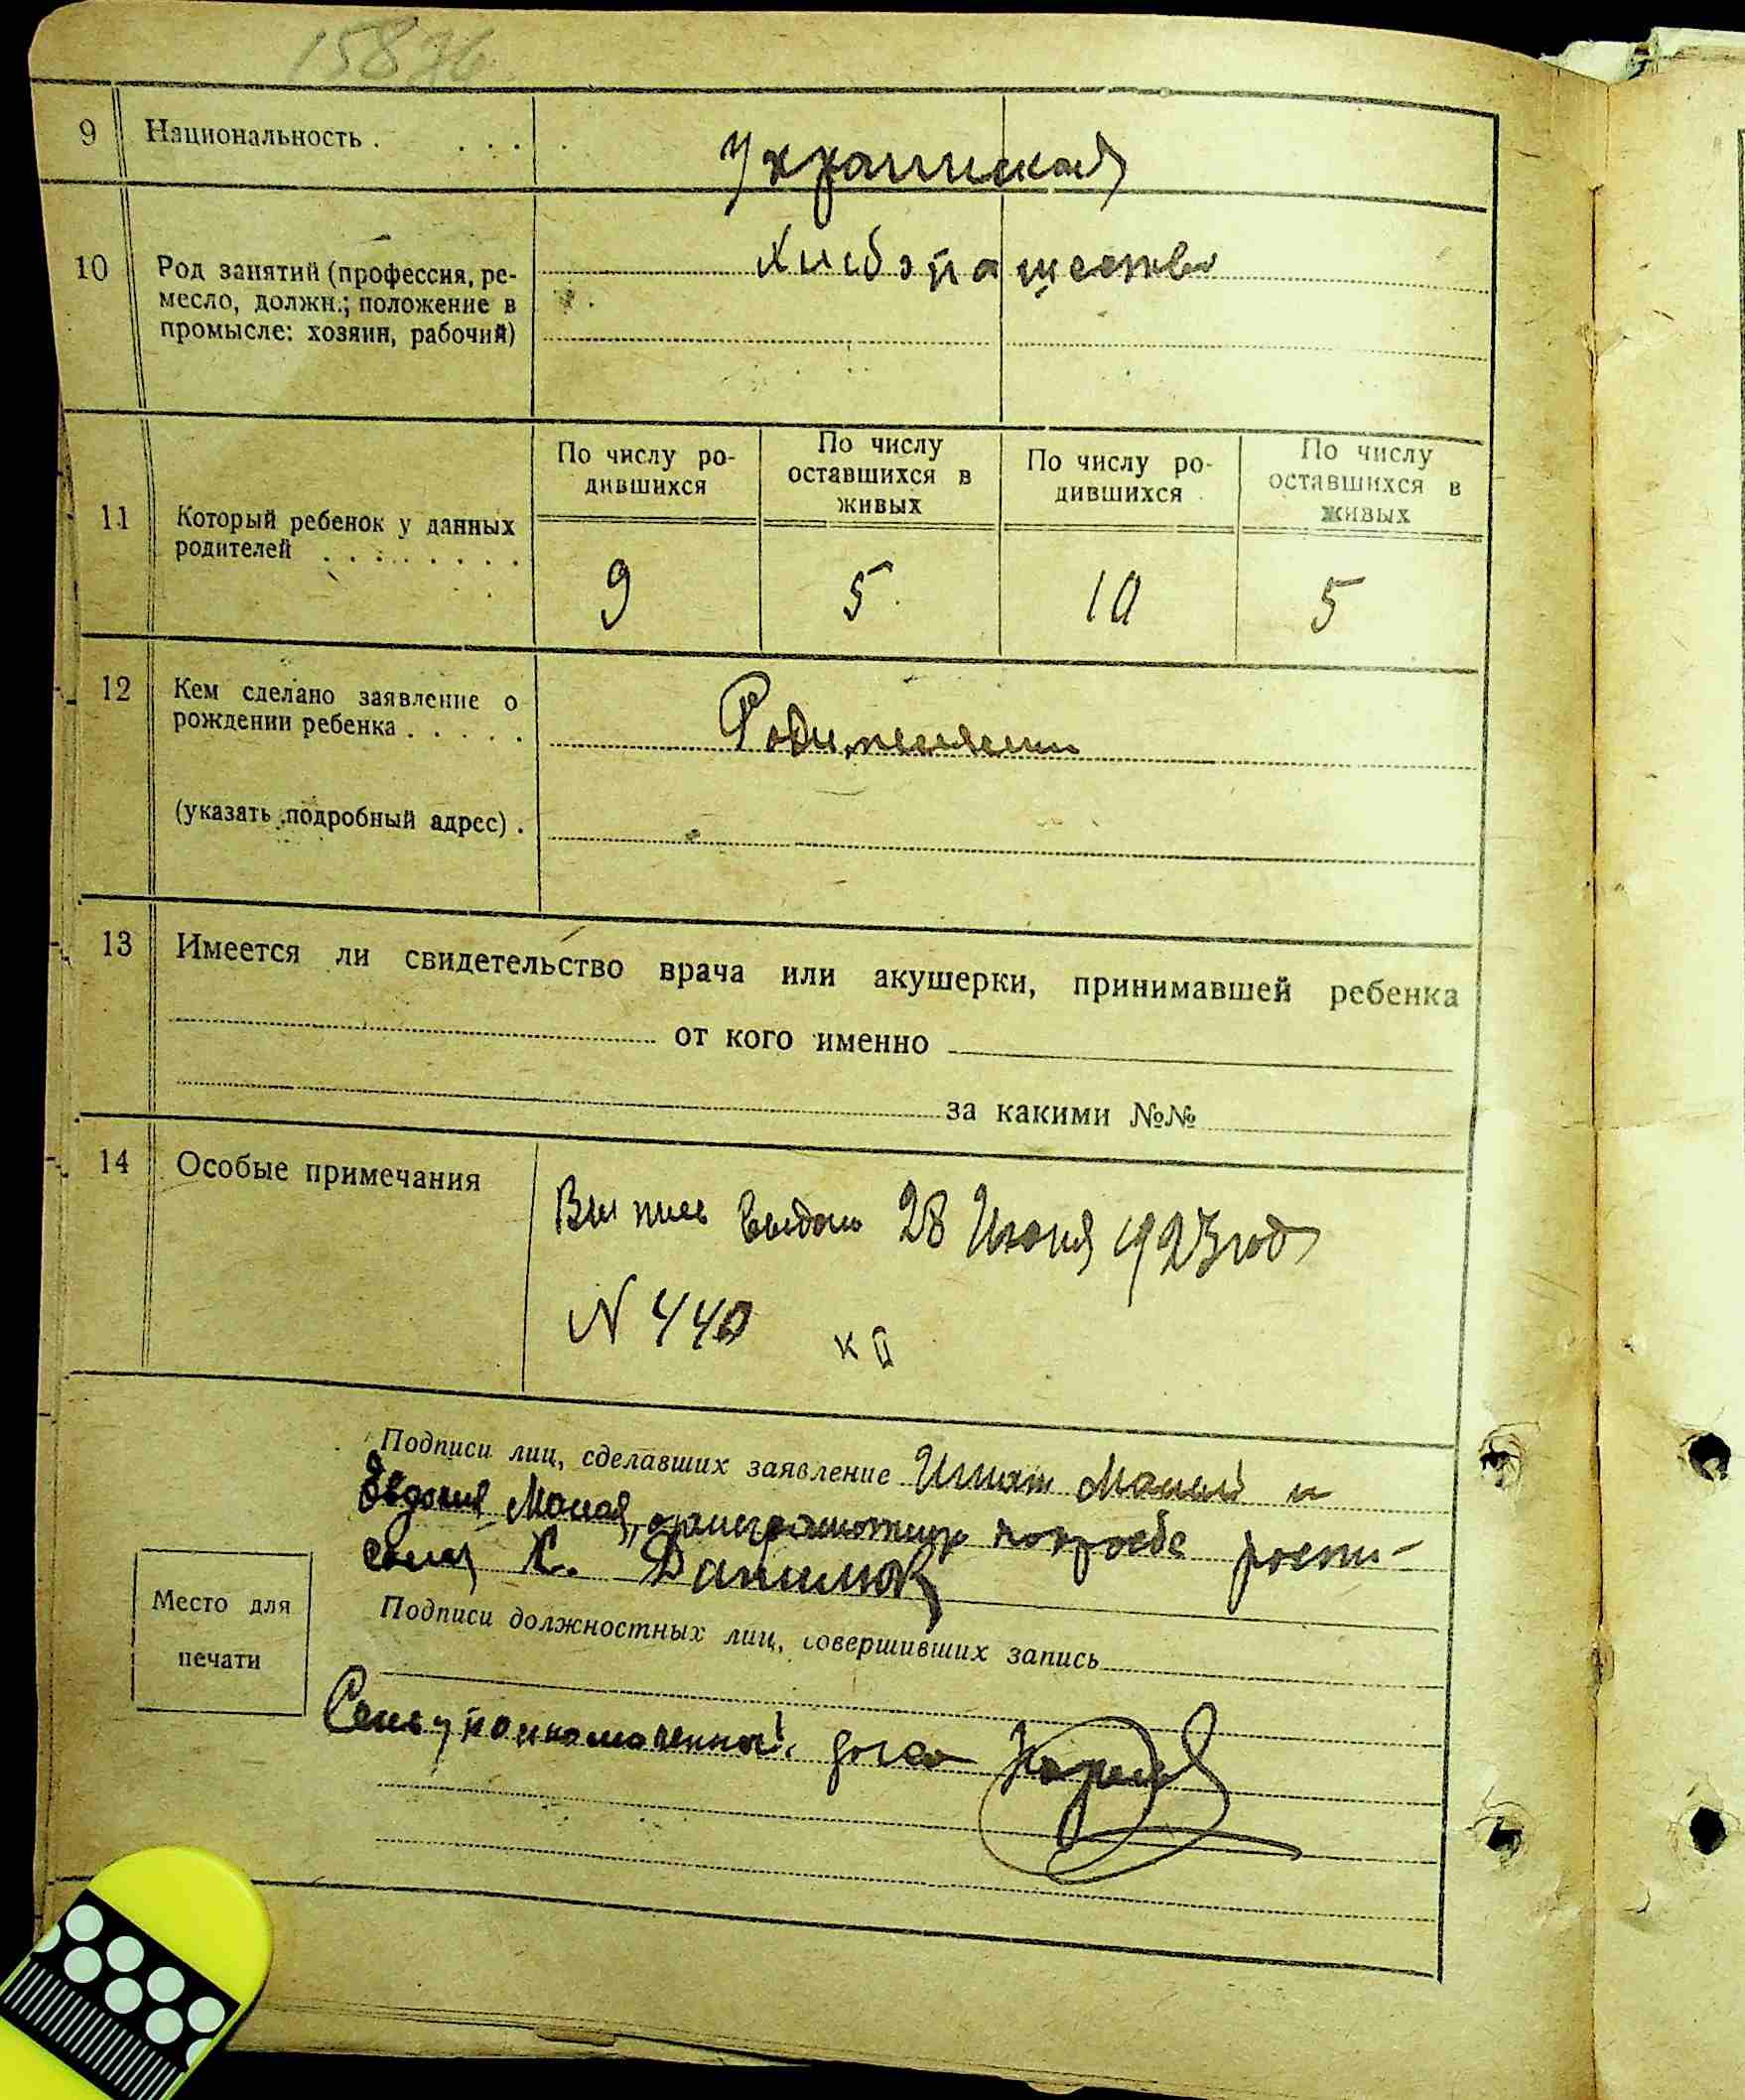 15826
9 Национальность . . . . Украинская
10 Род занятий (профессия, ре-
месло, должн.; положение в
промысле: хозяин, рабочий)
Хлебопашество
По числу ро-
дившихся
По числу
оставшихся в
живых
По числу ро-
дившихся
По числу
оставшихся в
живых
11 Который ребенок у данных
родителей . . . . . . . .
9 5 10 5
12 Кем сделано заявление о
рождении ребенка . . . . .
Родителями
(указать подробный адрес) .
13 Имеется ли свидетельство врача или акушерки, принимавшей ребенка
от кого именно
за какими №№
14 Особые примечания
Выпись выдан 28 Июня 1923 год
N 440
Подписи лиц, сделавших заявление Игнат Малый и
Евдокия Малая, а за неграмотных по просьбе роспи-
К. Данилюк
Место для
печати
Подписи должностных лиц, совершивших запись